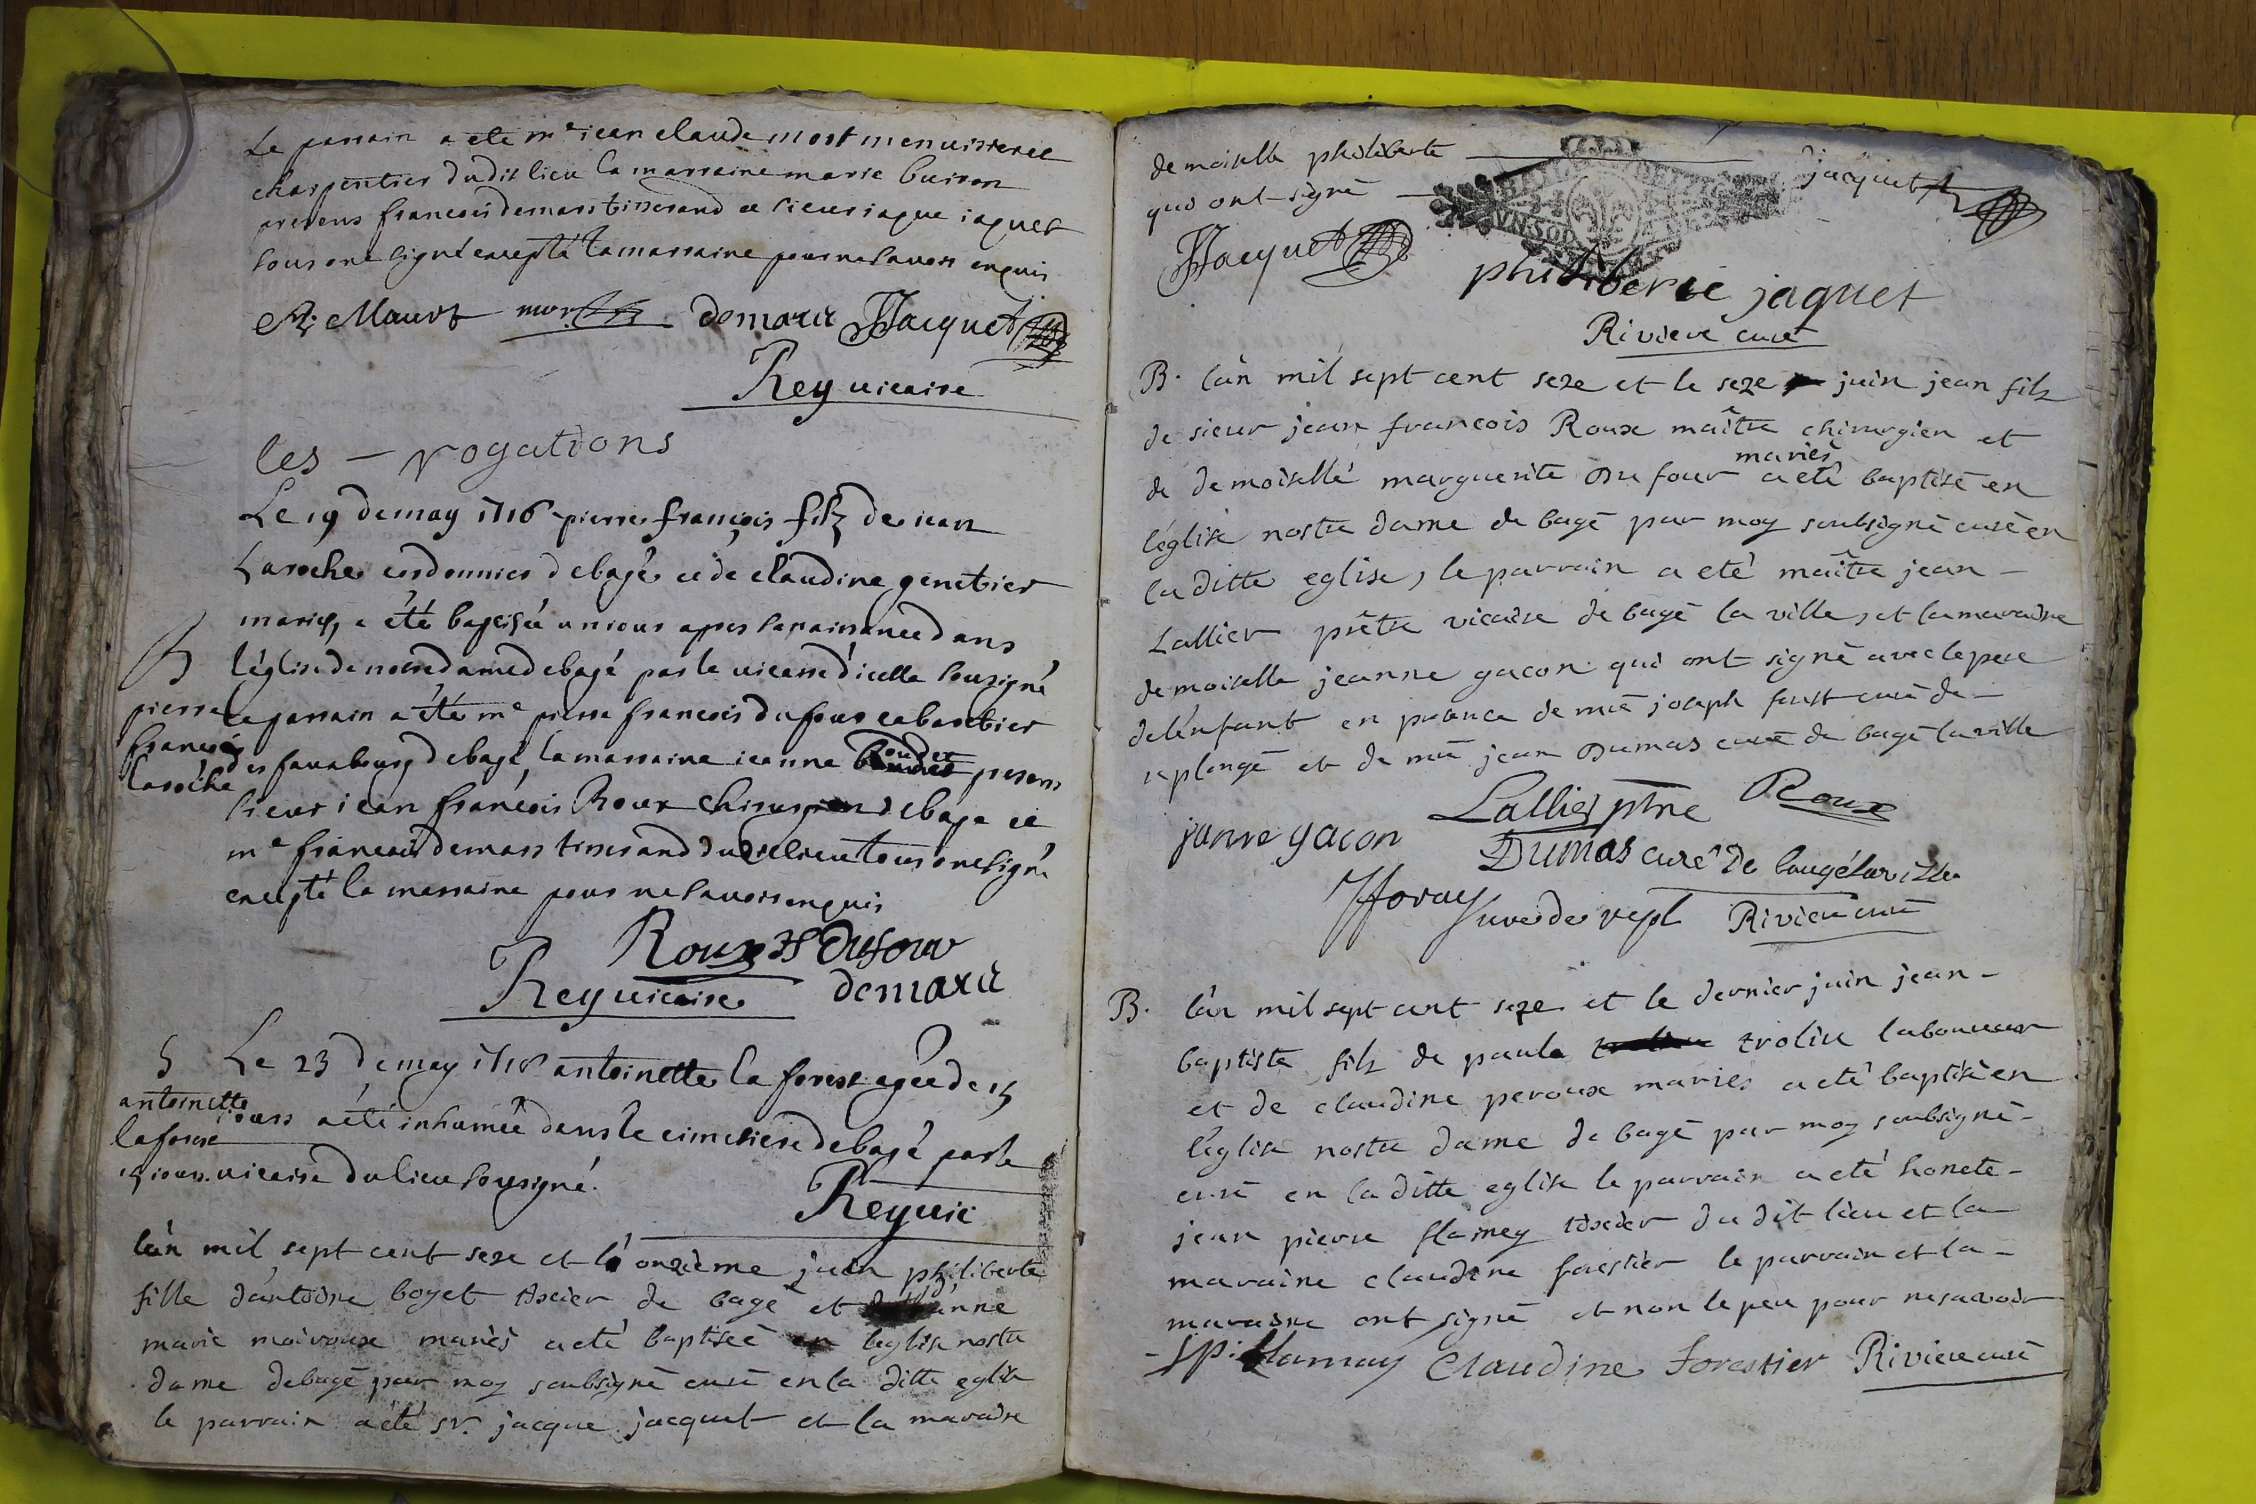 Le parrain a ete me jean claude mort menuisier et
charpentier dudit lieu la marraine marie buisson
presens francois demars tisserand et sieur iaque iaquet
tous ont signé excepté la marraine pour ne savoir enquis
mort demarr JJacquet
Rey vicaire
les - rogations
Le 19 de may 1716 pierre françois filz de jean
Laroche cordonnier de bagé et de claudine genetier
mariés, a été baptisé un jour apres sa naissance dans
B l'église de nostre dame de bagé par le vicaire d'icelle sousigné
pierre
françois
laroche
le parrain a été me pierre francois dufour cabaretier
des fauxbourg de bagé, la marraine jeanne presens
sieur jean françois Roux chirurgien de bagé et
me francois demars tisserand dudit lieu tous ont signé
excepté la marraine pour ne savoir enquis
Roux dufour
Rey vicaire demarr
S Le 23 de may 1716 antoinette la forest agée de 15
antoinette
laforest
15 jours
jours a été inhumée dans le cimetiere de bagé par le
vicaire du lieu sousigné.
Rey vic
l'an mil sept cent seze et le onzieme juin philiberte
fille d'antoine boyet tixier de bagé et anne
marie moiroux mariés a eté baptisée en l'eglise nostre
dame de bagé par moy soubsigné curé en la ditte eglise
le parrain a été sr. jacque jacquet et la maraine
demoiselle philiberte jacquet
qui ont signé
JJacquet
philiberte jaquet
Riviere curé
B. l'an mil sept cent seze et le seze juin jean fils
de sieur jean francois Roux maître chirurgien et
mariés
de demoisellé marguerite Dufour a eté baptisé en
l'église nostre dame de bagé par moy soubsigné curé en
la ditte eglise, le parrain a eté maître jean -
Lallier prêtre vicaire de bagé la ville, et la maraine
demoiselle jeanne gacon qui ont signé avec le pere
de l'enfant en presence de mre joseph curé de -
replonge et de mre jean Dumas curé de bagé la ville
Lallier ptre Roux
janne gacon Dumas curé de baugé la ville
curé de repl Riviere curé
B. l'an mil sept cent seze et le dernier juin jean -
baptiste fils de paule trolin laboureur
et de claudine peroux mariés a eté baptisé en
l'église nostre dame de bagé par moy soubsigné -
curé en la ditte eglise le parrain a eté honete -
jean pierre flamey tixier du dit lieu et la
maraine claudine forestier le parrain et la -
maraine ont signé et non le pere pour ne savoir
- JPi flamay Claudine forestier Riviere curé